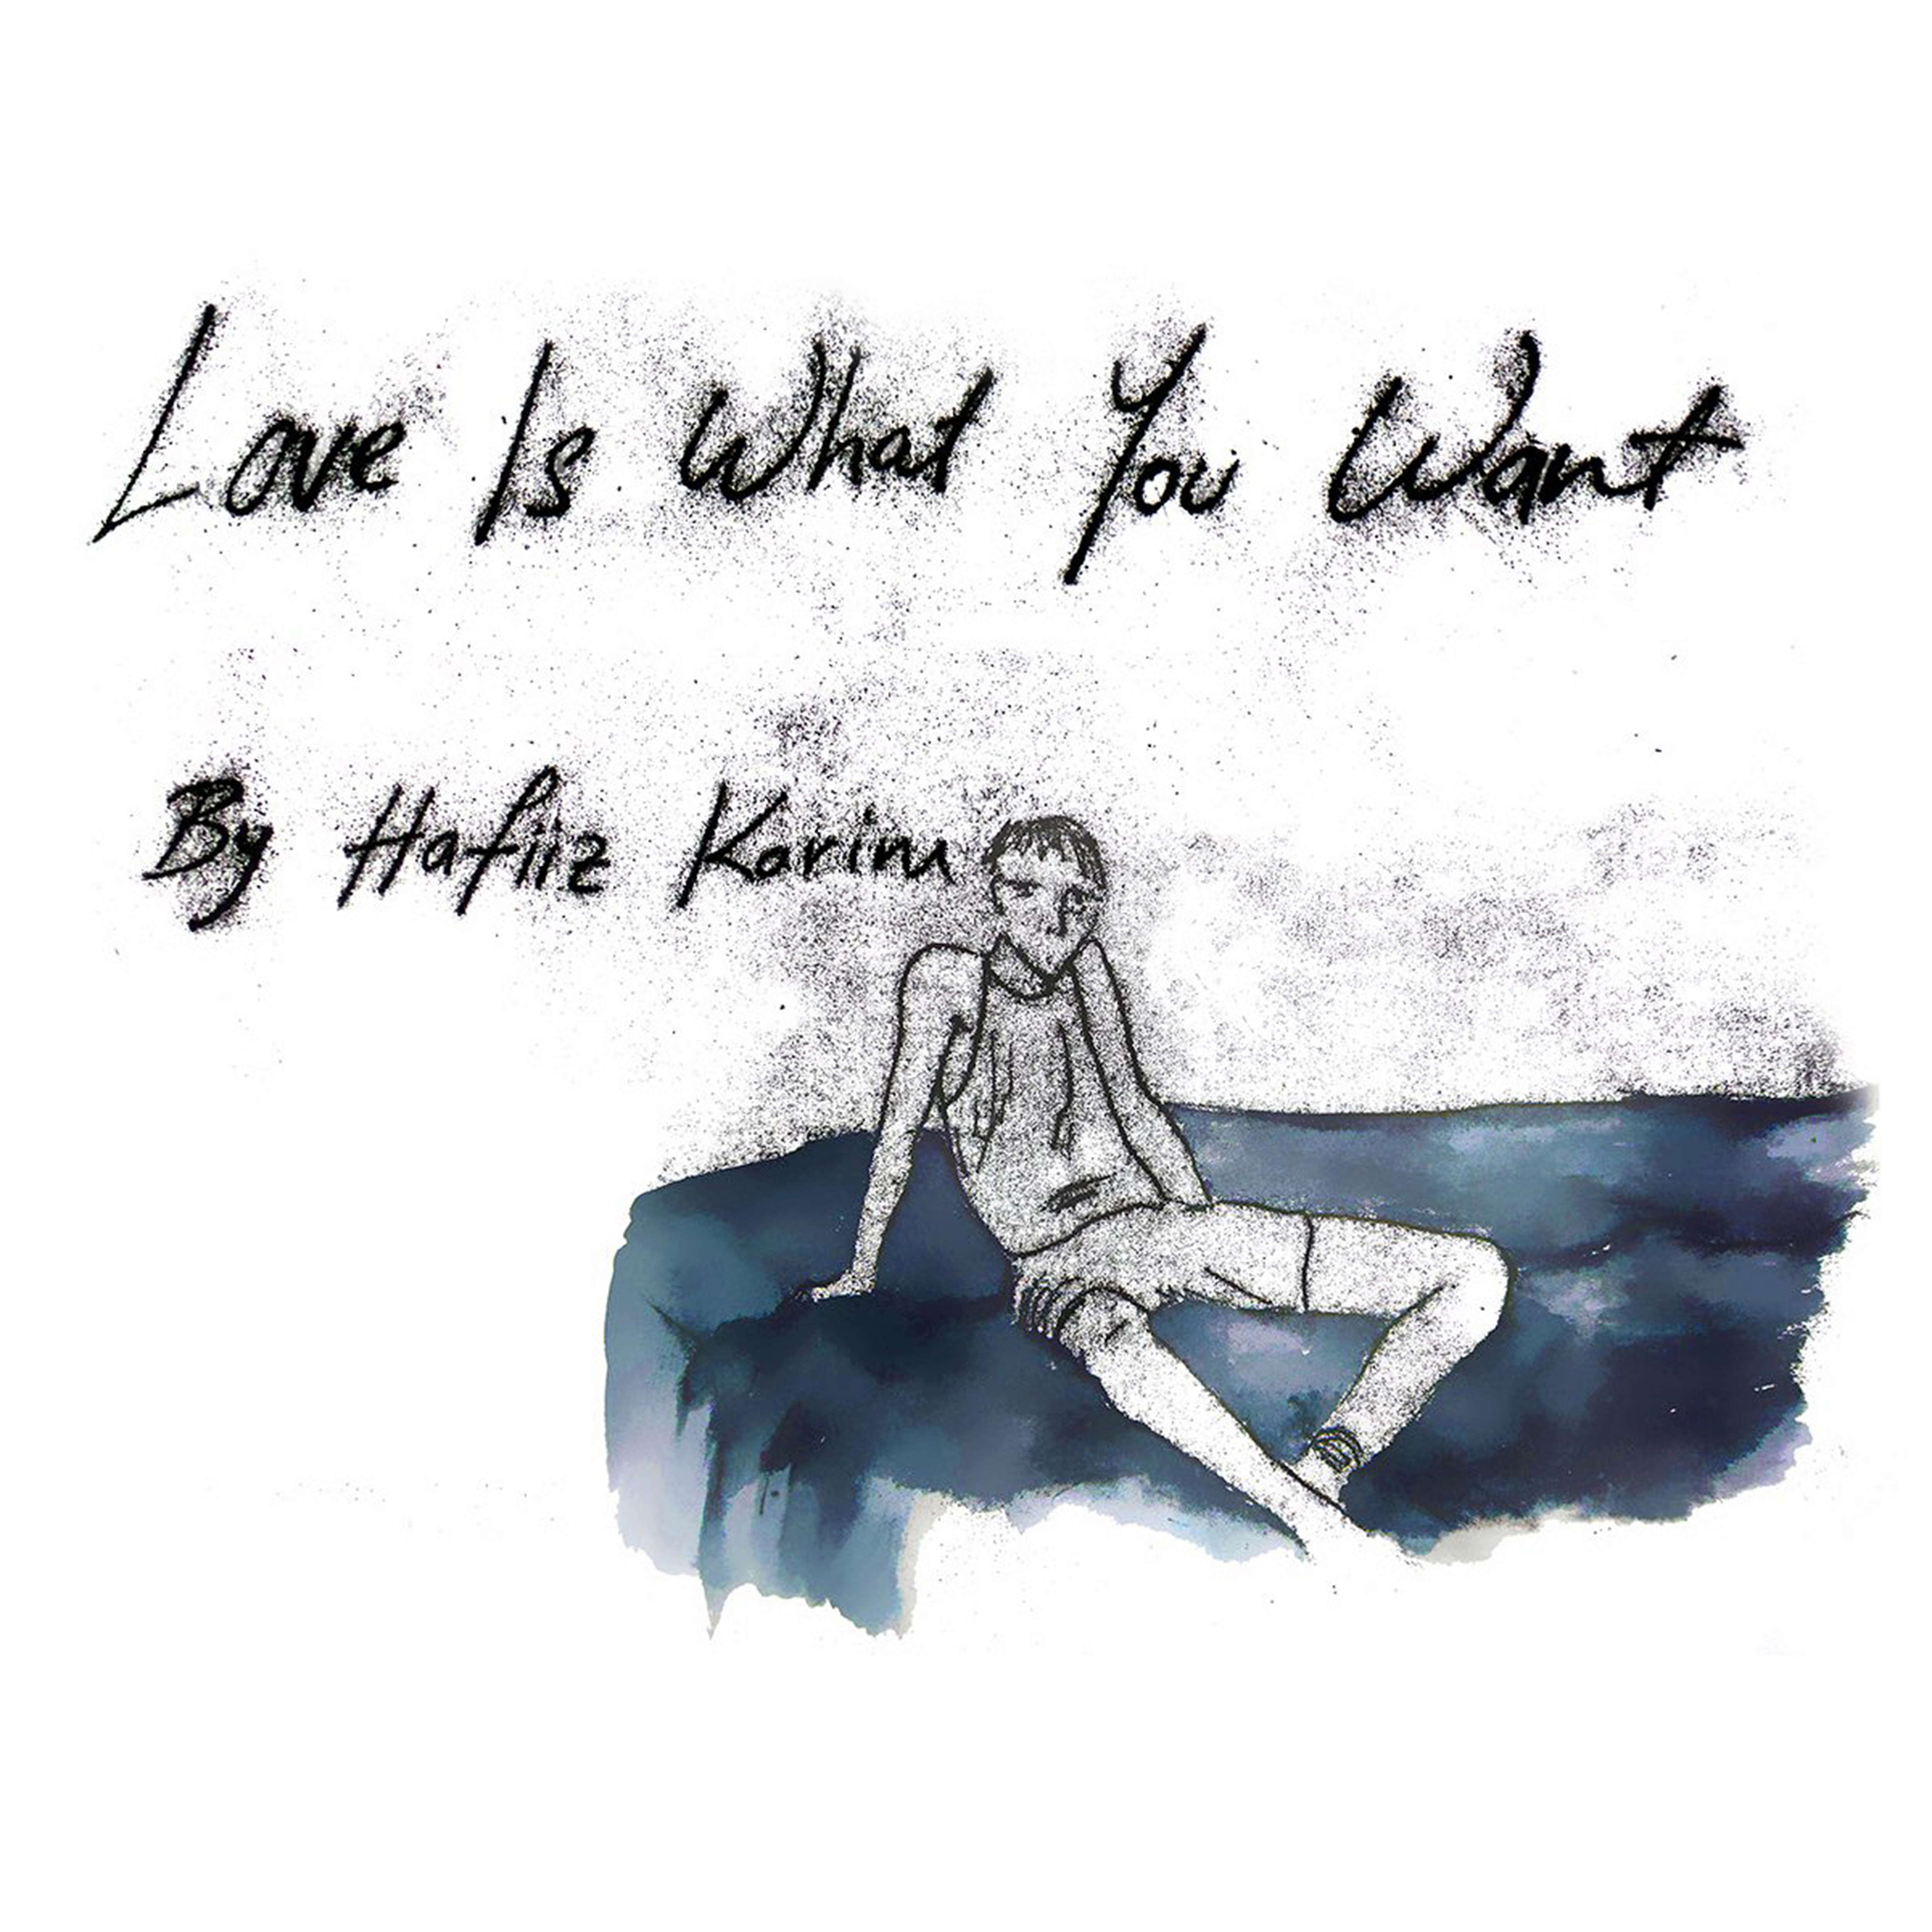 Love Is What You Want
By Hafiiz Karim